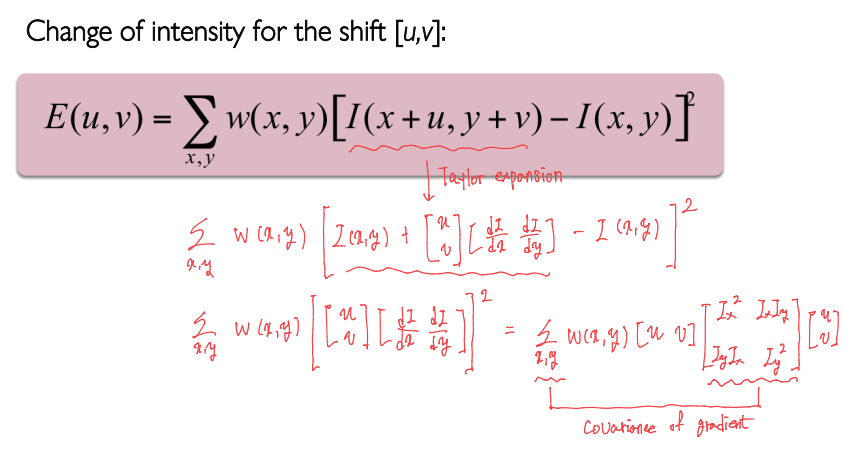 Change of intensity for the shift [u,v]:
E(u, v) = ∑_{x,y} w(x, y)[I(x + u, y + v) − I(x, y)]²
↓ Taylor expansion
∑_{x,y} w(x,y) [I(x,y) + [u v] [dI/dx dI/dy] − I(x,y)]²
∑_{x,y} w(x,y) [[u v] [dI/dx dI/dy]]² = ∑_{x,y} w(x,y) [u v] [Ix² IxIy IyIx Iy²] [u v]
Covariance of gradient